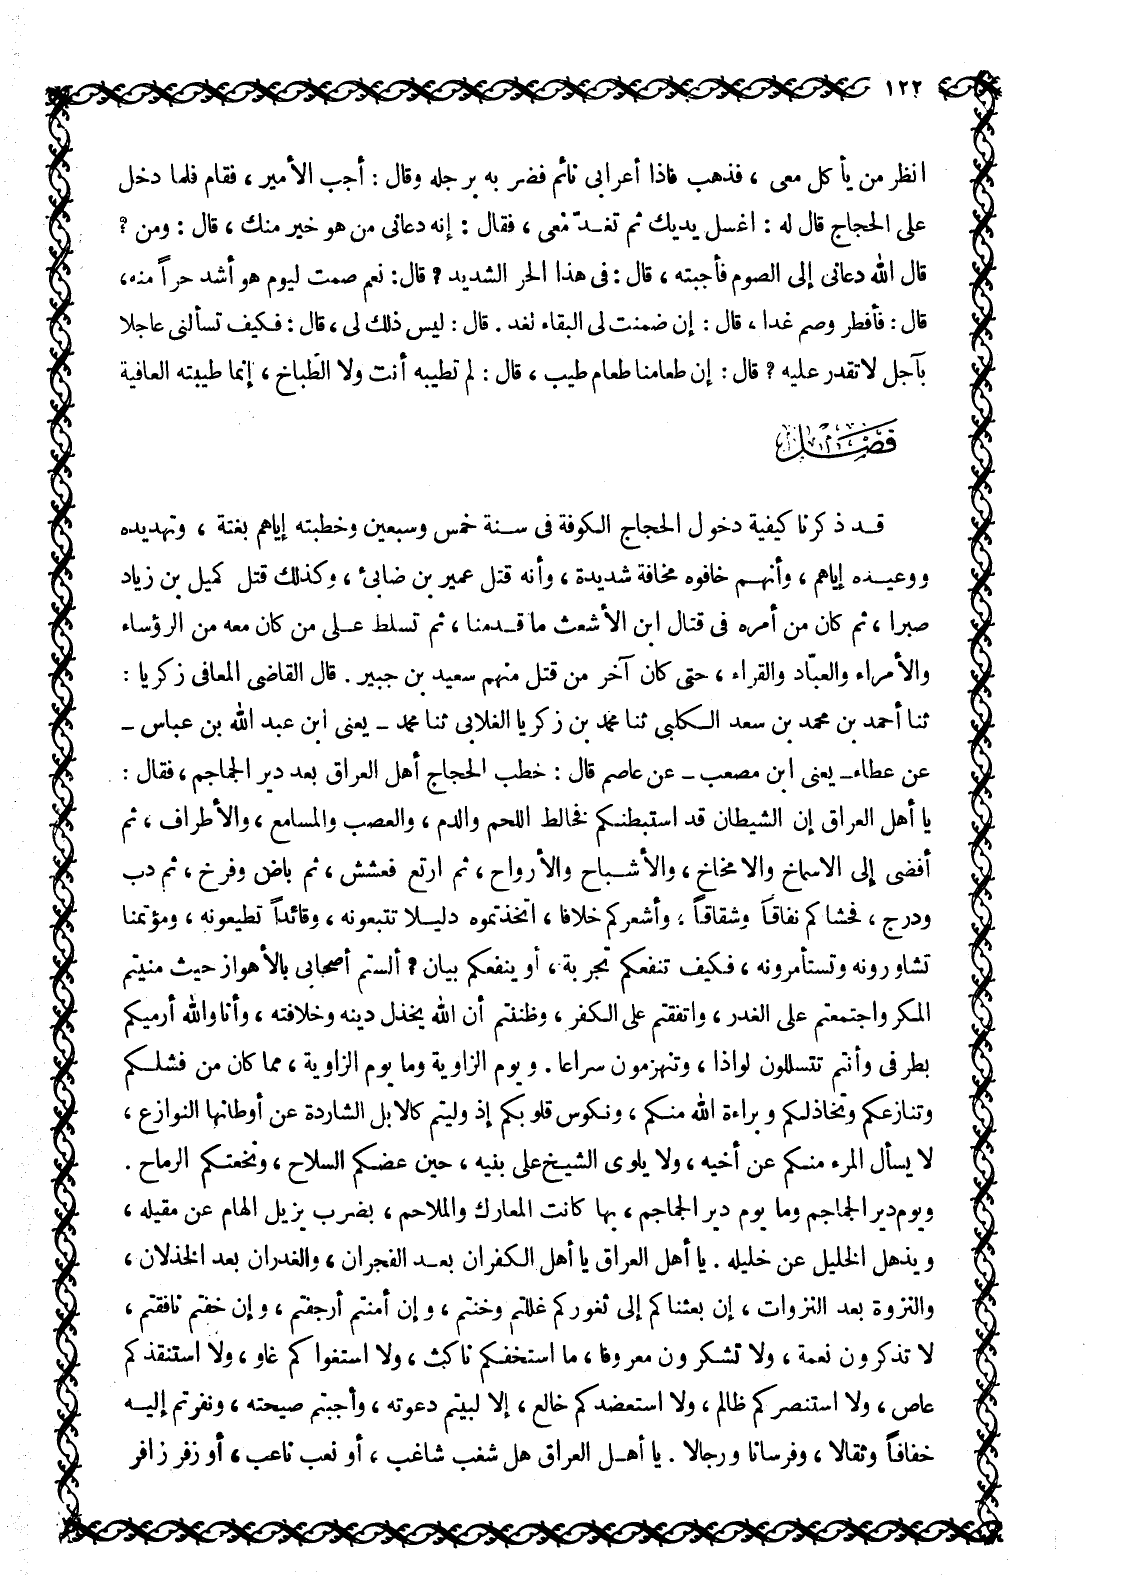 ١٢٢
انظر من يأكل معى ، فذهب فاذا أعرابى نائم فضربه برجله وقال : أجب الأمير ، فقام فلما دخل
على الحجاج قال له : اغسل يديك ثم تغدّ معى ، فقال : إنه دعانى من هو خير منك ، قال : ومن ؟
قال الله دعانى إلى الصوم فأجبته ، قال : فى هذا الحر الشديد ؟ قال : نعم صمت ليوم هو أشد حراً منه ،
قال : فأفطر وصم غدا ، قال : إن ضمنت لى البقاء لغد . قال : ليس ذلك لى ، قال : فكيف تسألنى عاجلا
بآجل لا تقدر عليه ؟ قال : إن طعامنا طعام طيب ، قال : لم تطيبه أنت ولا الطباخ ، إنما طيبته العافية
فصل
قد ذكرنا كيفية دخول الحجاج الكوفة فى سنة خمس وسبعين وخطبته إياهم بغتة ، وتهديده
ووعيده إياهم ، وأنهم خافوه مخافة شديدة ، وأنه قتل عمير بن ضابئ ، وكذلك قتل كميل بن زياد
صبرا ، ثم كان من أمره فى قتال ابن الأشعث ما قدمنا ، ثم تسلط على من كان معه من الرؤساء
والأمراء والعبّاد والقراء ، حتى كان آخر من قتل منهم سعيد بن جبير . قال القاضى المعافى زكريا :
ثنا أحمد بن محمد بن سعد الكلبى ثنا محمد بن زكريا الغلابى ثنا محمد ـ يعنى ابن عبد الله بن عباس ـ
عن عطاء ـ يعنى ابن مصعب ـ عن عاصم قال : خطب الحجاج أهل العراق بعد دير الجماجم ، فقال :
يا أهل العراق إن الشيطان قد استبطنكم فخالط اللحم والدم ، والعصب والمسامع ، والأطراف ، ثم
أفضى إلى الاسماخ والامخاخ ، والأشباح والأرواح ، ثم ارتع فعشش ، ثم باض وفرخ ، ثم دب
ودرج ، فحشاكم نفاقاً وشقاقاً ، وأشعركم خلافا ، اتخذتموه دليلا تتبعونه ، وقائداً تطيعونه ، ومؤتمنا
تشاورونه وتستأمرونه ، فكيف تنفعكم تجربة ، أو ينفعكم بيان ؟ ألستم أصحابى بالأهواز حيث منيتم
المكر واجتمعتم على الغدر ، واتفقتم على الكفر ، وظننتم أن الله يخذل دينه وخلافته ، وأنا والله أرميكم
بطرفى وأنتم تتسللون لواذا ، وتنهزمون سراعا . ويوم الزاوية وما يوم الزاوية ، مما كان من فشلكم
وتنازعكم وتخاذلكم وبراءة الله منكم ، ونكوس قلوبكم إذ وليتم كالابل الشاردة عن أوطانها النوازع ،
لا يسأل المرء منكم عن أخيه ، ولا يلوى الشيخ على بنيه ، حين عضكم السلاح ، ونخعتكم الرماح .
ويوم دير الجماجم وما يوم دير الجماجم ، بها كانت المعارك والملاحم ، بضرب يزيل الهام عن مقيله ،
ويذهل الخليل عن خليله . يا أهل العراق يا أهل الكفران بعد الفجران ، والغدران بعد الخذلان ،
والنزوة بعد النزوات ، إن بعثناكم إلى ثغوركم غللتم وخنتم ، وإن أمنتم أرجفتم ، وإن خفتم نافقتم ،
لا تذكرون نعمة ، ولا تشكرون معروفا ، ما استخفكم ناكث ، ولا استغواكم غاو ، ولا استنقذكم
عاص ، ولا استنصركم ظالم ، ولا استعضدكم خالع ، إلا لبيتم دعوته ، وأجبتم صيحته ، ونفرتم إليه
خفافاً وثقالا ، وفرسانا ورجالا . يا أهل العراق هل شغب شاغب ، أو نعب ناعب ، أو زفر زافر